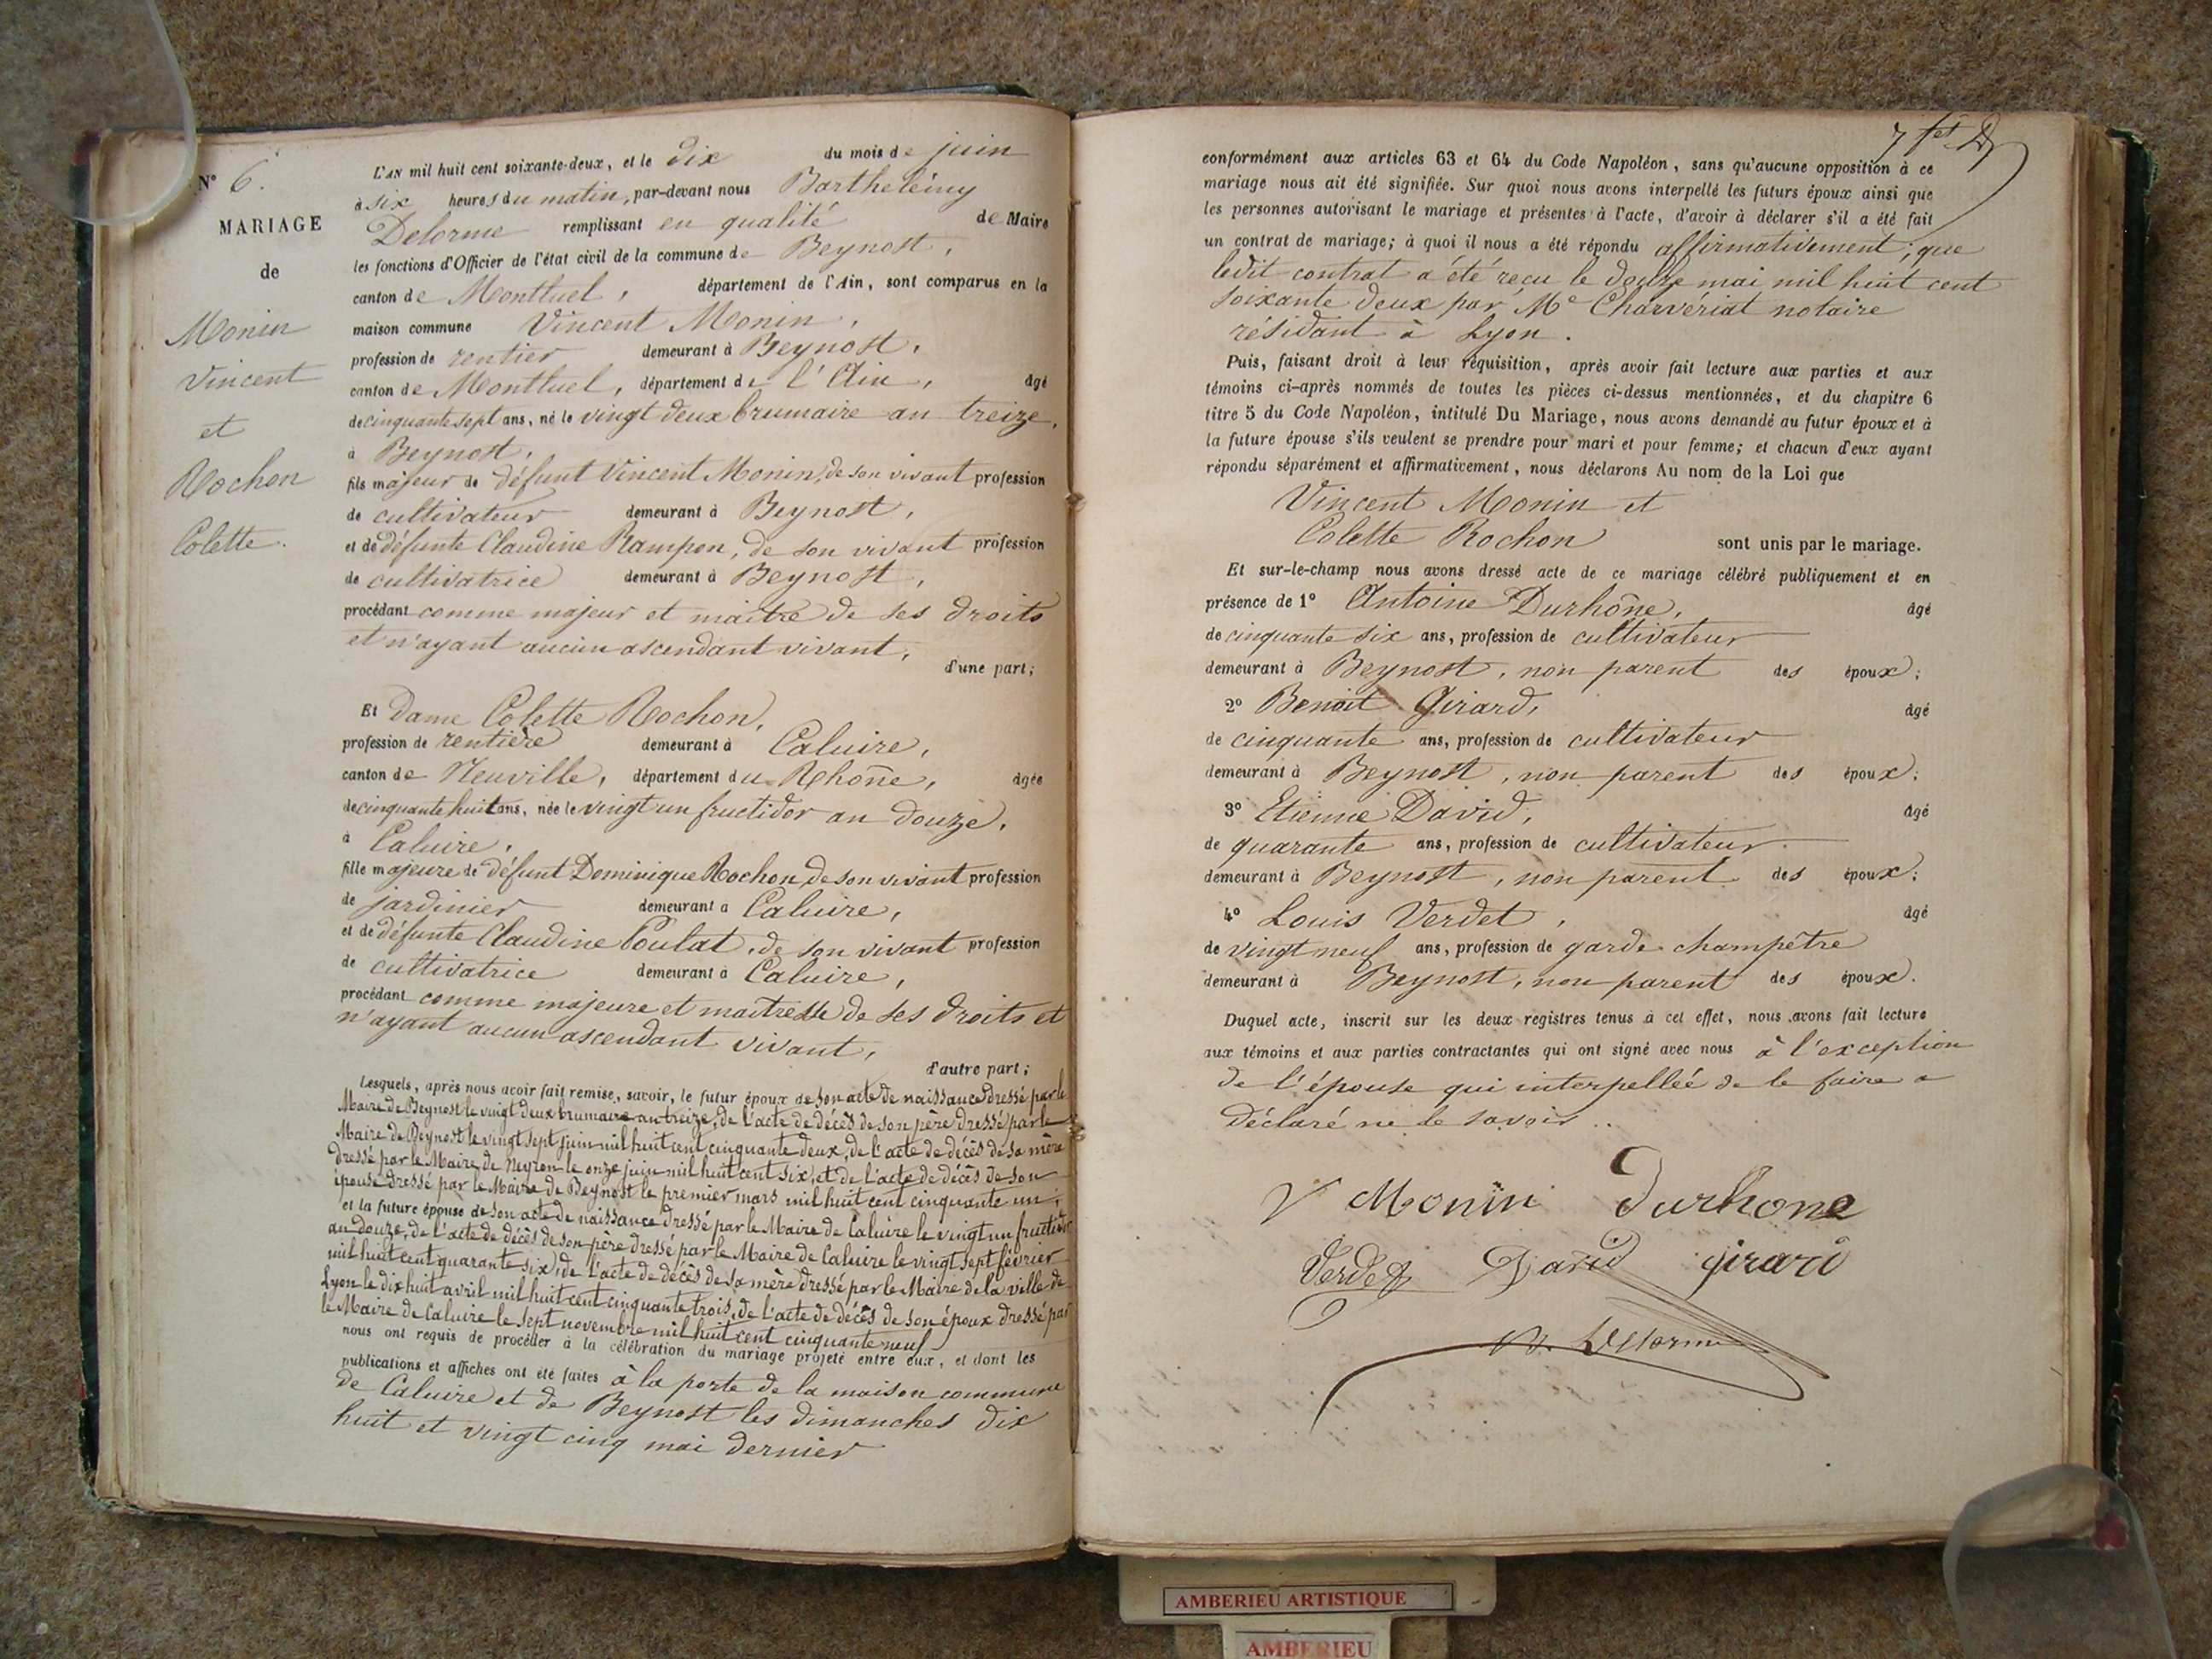 N° 6.
MARIAGE
de
Monin
Vincent
et
Rochon
Colette.
L'AN mil huit cent soixante-deux, et le dix du mois de juin
à six heures du matin, par-devant nous Barthelémy
Delorme remplissant en qualité de Maire
les fonctions d'Officier de l'état civil de la commune de Beynost,
canton de Montluel, département de l'Ain, sont comparus en la
maison commune Vincent Monin,
profession de rentier demeurant à Beynost,
canton de Montluel, département de l'Ain, âgé
de cinquante sept ans, né le vingt deux brumaire an treize,
à Beynost,
fils majeur de défunt Vincent Monin, de son vivant profession
de cultivateur demeurant à Beynost,
et de défunte Claudine Rampon, de son vivant profession
de cultivatrice demeurant à Beynost,
procédant comme majeur et maître de ses droits
et n'ayant aucun ascendant vivant,
d'une part;
Et Dame Colette Rochon,
profession de rentière demeurant à Caluire,
canton de Neuville, département du Rhône, âgée
de cinquante huit ans, née le vingt un fructidor an douze,
à Caluire,
fille majeure de défunt Dominique Rochon, de son vivant profession
de jardinier demeurant à Caluire,
et de défunte Claudine Poulat, de son vivant profession
de cultivatrice demeurant à Caluire,
procédant comme majeure et maitresse de ses droits et
n'ayant aucun ascendant vivant,
d'autre part;
Lesquels, après nous avoir fait remise, savoir, le futur époux de son acte de naissance dressé par le
Maire de Beynost le vingt deux brumaire an treize, de l'acte de décès de son père dressé par le
Maire de Beynost le vingt sept juin mil huit cent cinquante deux, de l'acte de décès de sa mère
dressé par le Maire de Neyron le onze juin mil huit cent six, et de l'acte de décès de son
épouse dressé par le Maire de Beynost le premier mars mil huit cent cinquante un;
et la future épouse de son acte de naissance dressé par le Maire de Caluire le vingt un fructidor
an douze, de l'acte de décès de son père dressé par le Maire de Caluire le vingt sept février
mil huit cent quarante six, de l'acte de décès de sa mère dressé par le Maire de la ville de
Lyon le dix huit avril mil huit cent cinquante trois, de l'acte de décès de son époux dressé par
le Maire de Caluire le sept novembre mil huit cent cinquante neuf
nous ont requis de procéder à la célébration du mariage projeté entre eux, et dont les
publications et affiches ont été faites à la porte de la maison commune
de Caluire et de Beynost les dimanches dix
huit et vingt cinq mai dernier
conformément aux articles 63 et 64 du Code Napoléon, sans qu'aucune opposition à ce
mariage nous ait été signifiée. Sur quoi nous avons interpellé les futurs époux ainsi que
les personnes autorisant le mariage et présentes à l'acte, d'avoir à déclarer s'il a été fait
un contrat de mariage; à quoi il nous a été répondu affirmativement; que
ledit contrat a été reçu le douze mai mil huit cent
soixante deux par Me Charvériat notaire
résidant à Lyon.
Puis, faisant droit à leur réquisition, après avoir fait lecture aux parties et aux
témoins ci-après nommés de toutes les pièces ci-dessus mentionnées, et du chapitre 6
titre 5 du Code Napoléon, intitulé Du Mariage, nous avons demandé au futur époux et à
la future épouse s'ils veulent se prendre pour mari et pour femme; et chacun d'eux ayant
répondu séparément et affirmativement, nous déclarons Au nom de la Loi que
Vincent Monin et
Colette Rochon sont unis par le mariage.
Et sur-le-champ nous avons dressé acte de ce mariage célébré publiquement et en
présence de 1° Antoine Durhône, âgé
de cinquante six ans, profession de cultivateur
demeurant à Beynost, non parent des époux;
2° Benoit Girard, âgé
de cinquante ans, profession de cultivateur
demeurant à Beynost, non parent des époux;
3° Etienne David, âgé
de quarante ans, profession de cultivateur
demeurant à Beynost, non parent des époux;
4° Louis Verdet, âgé
de vingt neuf ans, profession de garde champêtre
demeurant à Beynost, non parent des époux.
Duquel acte, inscrit sur les deux registres tenus à cet effet, nous avons fait lecture
aux témoins et aux parties contractantes qui ont signé avec nous à l'exception
de l'épouse qui interpellée de le faire a
déclaré ne le savoir..
V Monin Durhone
Verdet David girard
B. Delorme
AMBERIEU ARTISTIQUE
AMBERIEU